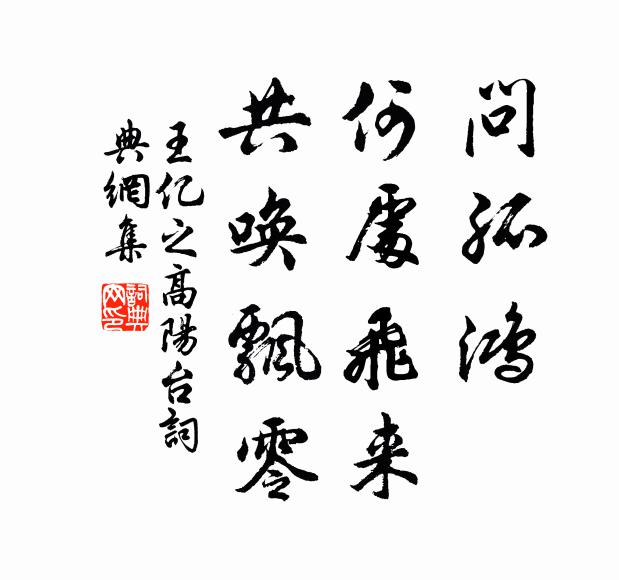 問孤鴻
何處飛来
共喚飄零
王億之高陽台詞
典網集
詞典
网印